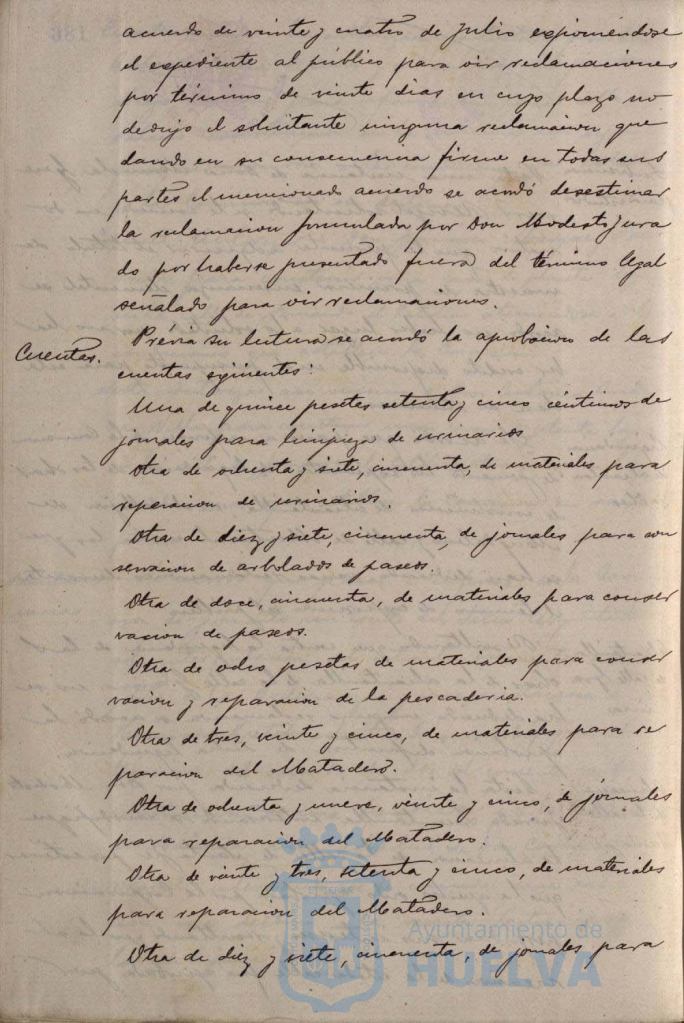 acuerdo de veinte y cuatro de Julio exponiéndose
el expediente al público para oir reclamaciones
por término de veinte dias en cuyo plazo no
dedujo el solicitante ninguna reclamacion que
dando en su consecuencia firme en todas sus
partes el mencionado acuerdo se acordó desestimar
la reclamacion formulada por Don Modesto Jura
do por haberse presentado fuera del término legal
señalado para oir reclamaciones.
Cuentas.
Prévia su lectura se acordó la aprobacion de las
cuentas siguientes:
Una de quince pesetas setenta y cinco céntimos de
jornales para limpieza de urinarios
Otra de ochenta y siete, cincuenta, de materiales para
reparacion de urinarios.
Otra de diez y siete, cincuenta, de jornales para con
servacion de arbolados de paseos.
Otra de doce, cincuenta, de materiales para conser
vacion de paseos.
Otra de ocho pesetas de materiales para conser
vacion y reparacion de la pescaderia.
Otra de tres, veinte y cinco, de materiales para re
paracion del Matadero.
Otra de ochenta y nueve, veinte y cinco, de jornales
para reparacion del Matadero.
Otra de veinte y tres, setenta y cinco, de materiales
para reparacion del Matadero.
Otra de diez y siete, cincuenta, de jornales para
Ayuntamiento de
HUELVA